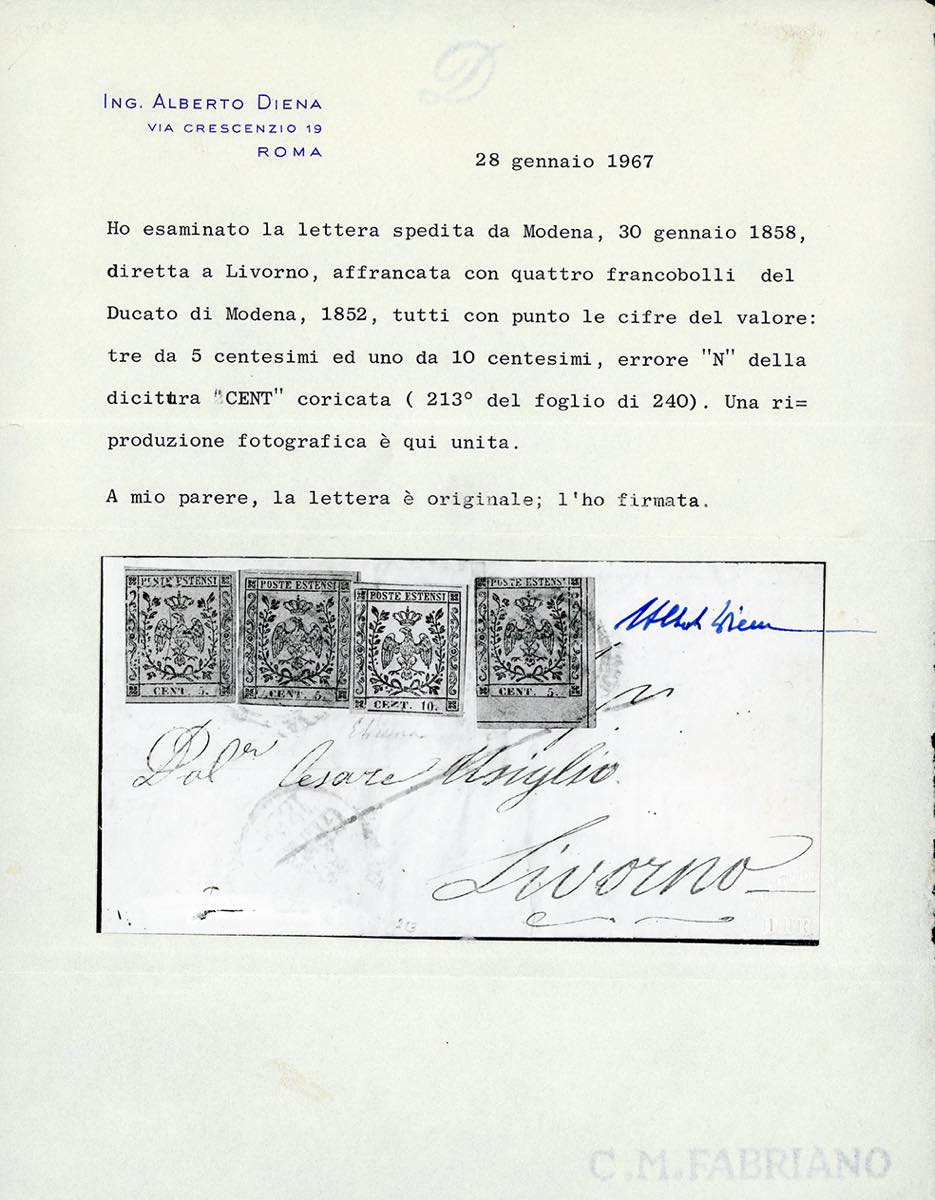 D
ING. ALBERTO DIENA
VIA CRESCENZIO 19
ROMA
28 gennaio 1967
Ho esaminato la lettera spedita da Modena, 30 gennaio 1858,
diretta a Livorno, affrancata con quattro francobolli del
Ducato di Modena, 1852, tutti con punto le cifre del valore:
tre da 5 centesimi ed uno da 10 centesimi, errore "N" della
dicitura "CENT" coricata ( 213° del foglio di 240). Una ri=
produzione fotografica è qui unita.
A mio parere, la lettera è originale; l'ho firmata.
POSTE ESTENSI POSTE ESTENSI POSTE ESTENSI POSTE ESTENSI
CENT. 5. CENT. 5. CEZT. 10. CENT. 5.
Cesare Usiglio
Livorno
213
C.M.FABRIANO